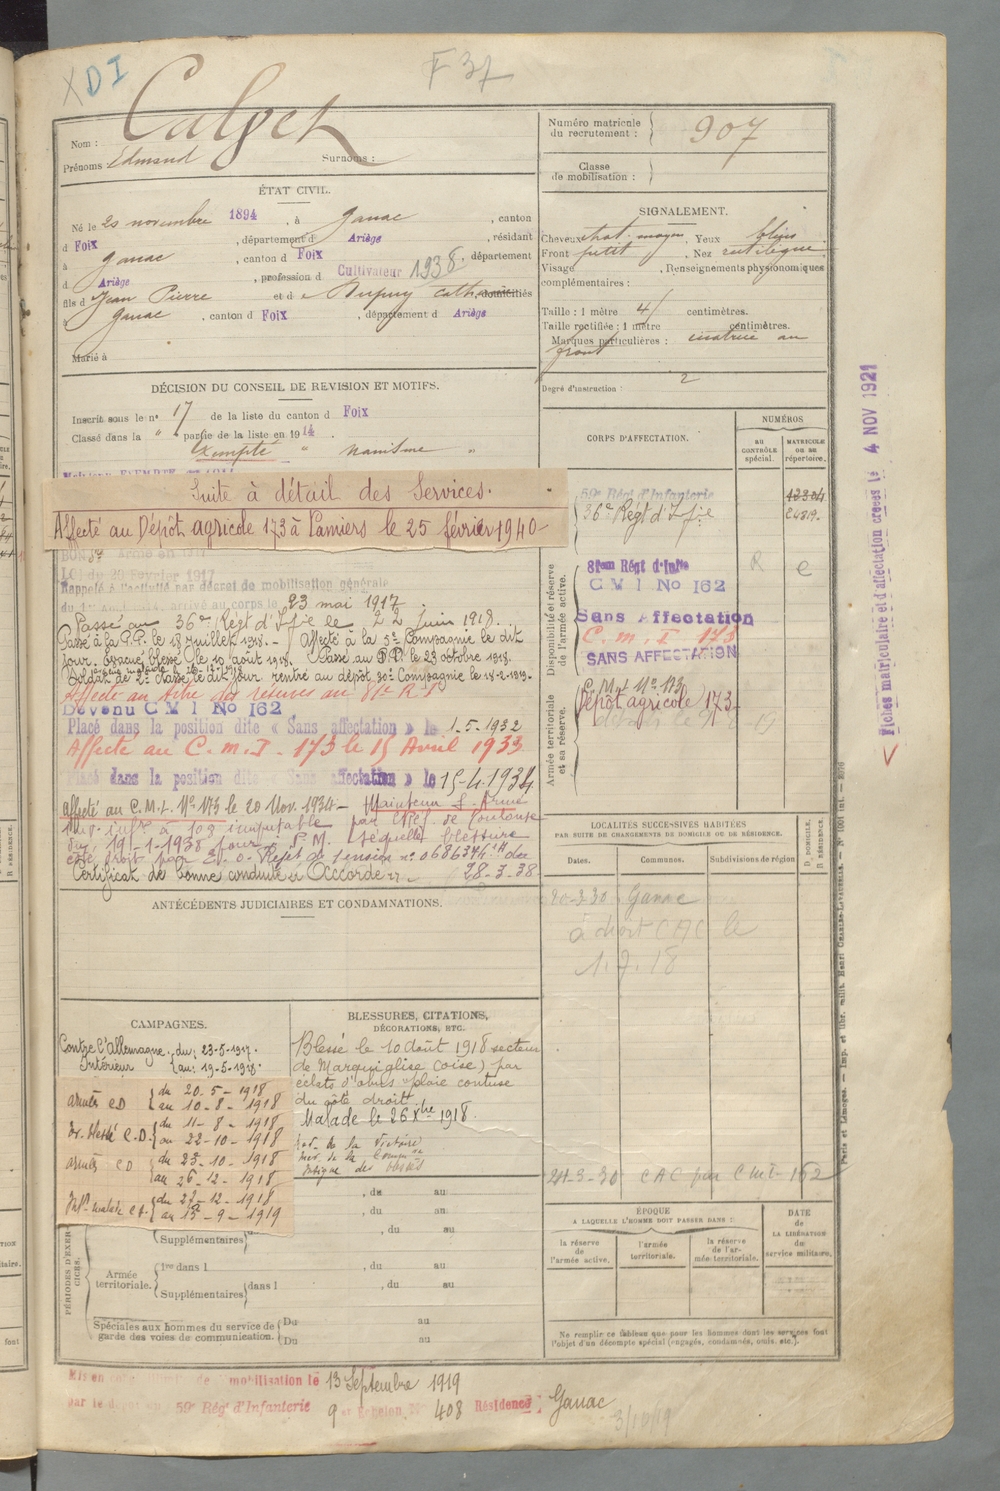 X DI
F 37
Nom : Calvet
Prénoms Edmond Surnoms :
Numéro matricule du recrutement : 907
Classe de mobilisation :
ÉTAT CIVIL.
Né le 20 novembre 1894, à Ganac, canton
d Foix, département d Ariège, résidant
à Ganac, canton d Foix, département
d Ariège, profession d Cultivateur 1938
fils d Jean Pierre et d Dupuy Cath domiciliés
à Ganac, canton d Foix, département d Ariège
Marié à
SIGNALEMENT.
Cheveux chat. moyen, Yeux bleus
Front petit, Nez rectiligne
Visage, Renseignements physionomiques
complémentaires :
Taille : 1 mètre 41 centimètres.
Taille rectifiée : 1 mètre centimètres.
Marques particulières : cicatrice au
front
Degré d'instruction : 2
DÉCISION DU CONSEIL DE REVISION ET MOTIFS.
Inscrit sous le n° 17 de la liste du canton d Foix
Classé dans la " partie de la liste en 1914.
Exempté " nanisme "
Suite à détail des Services.
Affecté au Dépôt agricole 173 à Pamiers le 25 février 1940
LOI du 20 Février 1917
Rappelé à l'activité par décret de mobilisation générale
arrivé au corps le 23 mai 1917
Passé au 36e Régt d'Ifie le 22 juin 1918.
Passé à la P.P. le 18 juillet 1918. - Affecté à la 5e Compagnie le dit
jour. Evacué blessé le 10 août 1918. Passé au P.D. le 23 octobre 1918.
Soldat de 2e classe le dit jour rentré au dépôt 30e Compagnie le 18-2-1919.
Affecté au des réserves au 81e R I
Devenu C M I No 162
Placé dans la position dite « Sans affectation » le 1-5-1932
Affecté au C. m. I. 173 le 15 Avril 1933
Placé dans la position dite « Sans affectation » le 15-4-1934
Affecté au C.M.I. No 173 le 20 Nov. 1934 - Maintenu S. Armé
infre à 10% imputable par de Toulouse
du 19-1-1938 pour P.M. Séquelles blessure
côté droit par E. O. Rejet de pension no 0686374 du
Certificat de bonne conduite "Accordé" 28-3-38
CORPS D'AFFECTATION.
NUMÉROS
AU CONTRÔLE spécial.
MATRICULE OU RÉPERTOIRE.
59e Régt d'Infanterie 12304
36e Régt d'Ifie 24819
81em Régt d'Infie
C M I No 162
Sans Affectation
C. m. I 173
SANS AFFECTATION
C.M.I. No 173
Dépôt agricole 173
Disponibilité et réserve de l'armée active.
Armée territoriale et sa réserve.
Fiches matriculaire et d'affectation créées le 4 NOV 1921
LOCALITÉS SUCCESSIVES HABITÉES
PAR SUITE DE CHANGEMENTS DE DOMICILE OU DE RÉSIDENCE.
Dates. Communes. Subdivisions de région D. DOMICILE. R RÉSIDENCE.
20-3-30 Ganac
à droit CAC le
1.7.18
24-3-30 CAC par CMI 162
ANTÉCÉDENTS JUDICIAIRES ET CONDAMNATIONS.
CAMPAGNES.
Contre l'Allemagne, du : 23-5-1917.
Intérieur au : 19-5-1918.
armées CD du 20-5-1918
au 10-8-1918
Int. blessé C.D. du 11-8-1918
au 22-10-1918
armées CD du 23-10-1918
au 26-12-1918
Int. malade CD du 27-12-1918
au 13-9-1919
BLESSURES, CITATIONS,
DÉCORATIONS, ETC.
Blessé le 10 août 1918 secteur
de Marquéglise (Oise) par
éclats d'obus "plaie contuse
du côté droit"
Malade le 26 Xbre 1918.
Med. de la Victoire
PÉRIODES D'EXERCICES.
Supplémentaires , du au
Armée territoriale. 1re dans l , du au
Supplémentaires dans l , du au
Spéciales aux hommes du service de garde des voies de communication. Du au
Du au
ÉPOQUE
A LAQUELLE L'HOMME DOIT PASSER DANS :
la réserve de l'armée active.
l'armée territoriale.
la réserve de l'armée territoriale.
DATE de LA LIBÉRATION du service militaire.
Ne remplir ce tableau que pour les hommes dont les services font
l'objet d'un décompte spécial (engagés, condamnés, omis, etc.).
Mis en de mobilisation le 13 Septembre 1919
par le 59e Rég' d'Infanterie 9 et Echelon No 408 Résidence : Ganac
3/10/19